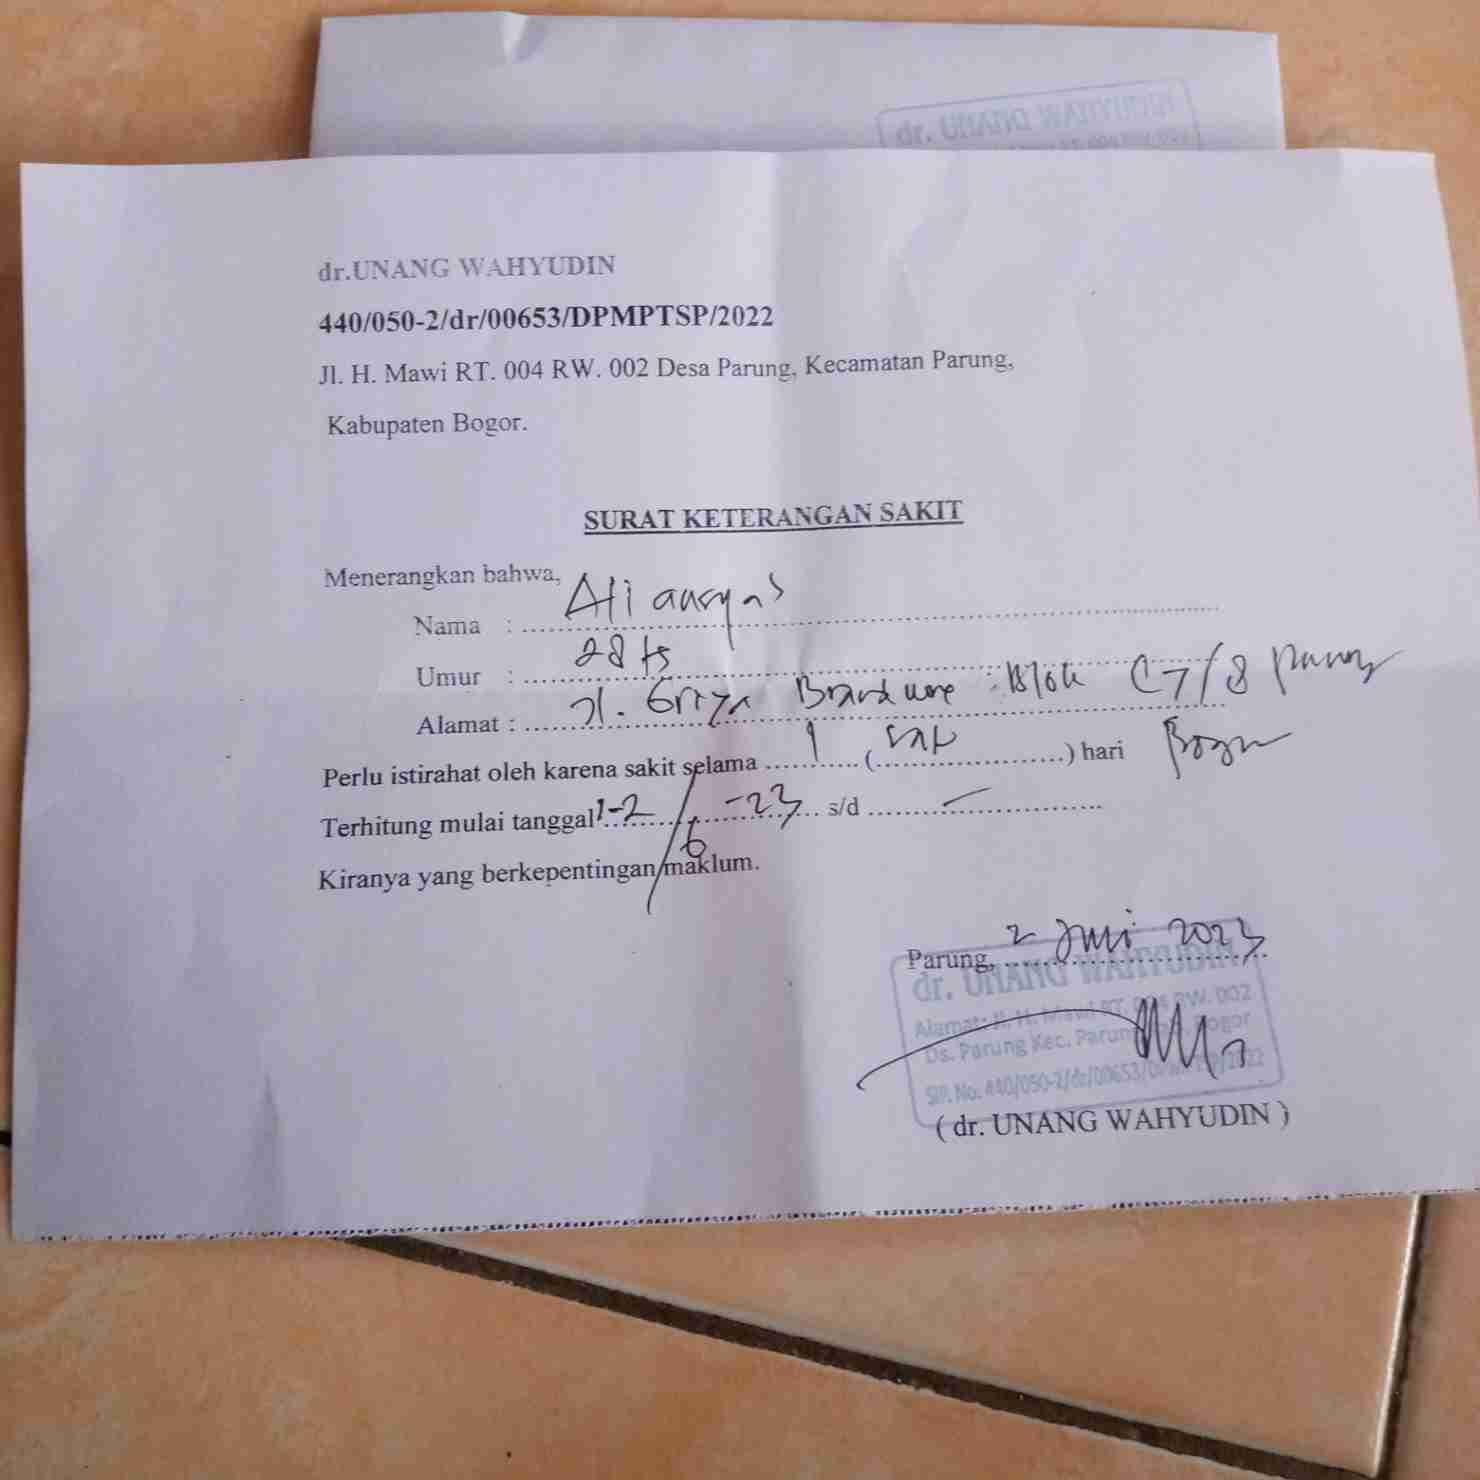 dr. UNANG WAHYUDIN
dr.UNANG WAHYUDIN
440/050-2/dr/00653/DPMPTSP/2022
Jl. H. Mawi RT. 004 RW. 002 Desa Parung, Kecamatan Parung,
Kabupaten Bogor.
SURAT KETERANGAN SAKIT
Menerangkan bahwa,
Nama :
Umur : 28
Alamat : Jl. Griya Blok C7/8 Parung
Bogor
Perlu istirahat oleh karena sakit selama 1 (satu) hari
Terhitung mulai tanggal 2/6-23 s/d -
Kiranya yang berkepentingan maklum.
Parung, 2 Juni 2023
dr. UNANG WAHYUDIN
Alamat: Jl. H. Mawi RT. 004 RW. 002
Ds. Parung Kec. Parung Bogor
SIP. No. 440/050-2/dr/00653/DPMPTSP/2022
( dr. UNANG WAHYUDIN )